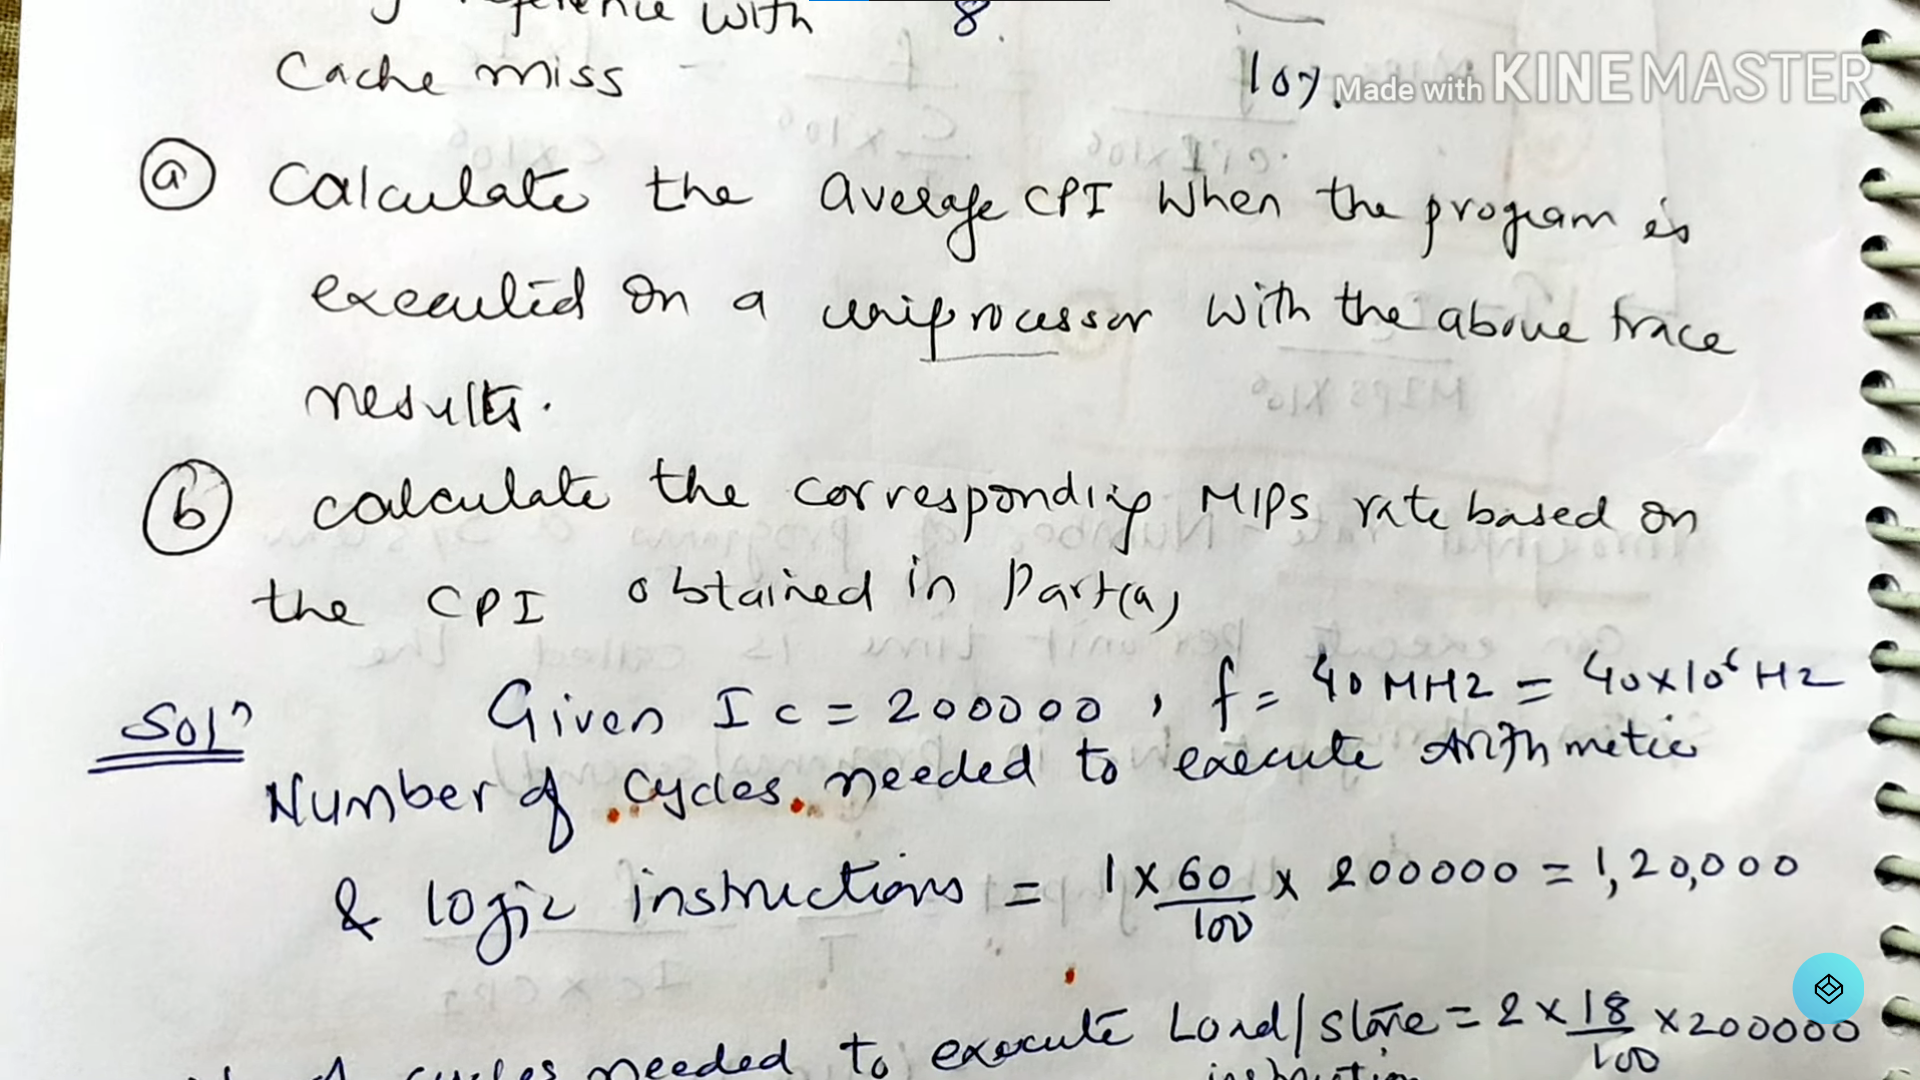 reference with 8.
Cache miss 10%.
Made with KINEMASTER
(a) Calculate the average CPI when the program is
executed on a uniprocessor with the above trace
results.
(b) calculate the corresponding MIPS rate based on
the CPI obtained in Part(a)
Soln Given Ic = 200000, f = 40 MHz = 40x10^6 Hz
Number of cycles needed to execute Arithmetic
& logic instructions = 1 x 60/100 x 200000 = 1,20,000
of cycles needed to execute Load/store = 2 x 18/100 x 200000
instruction